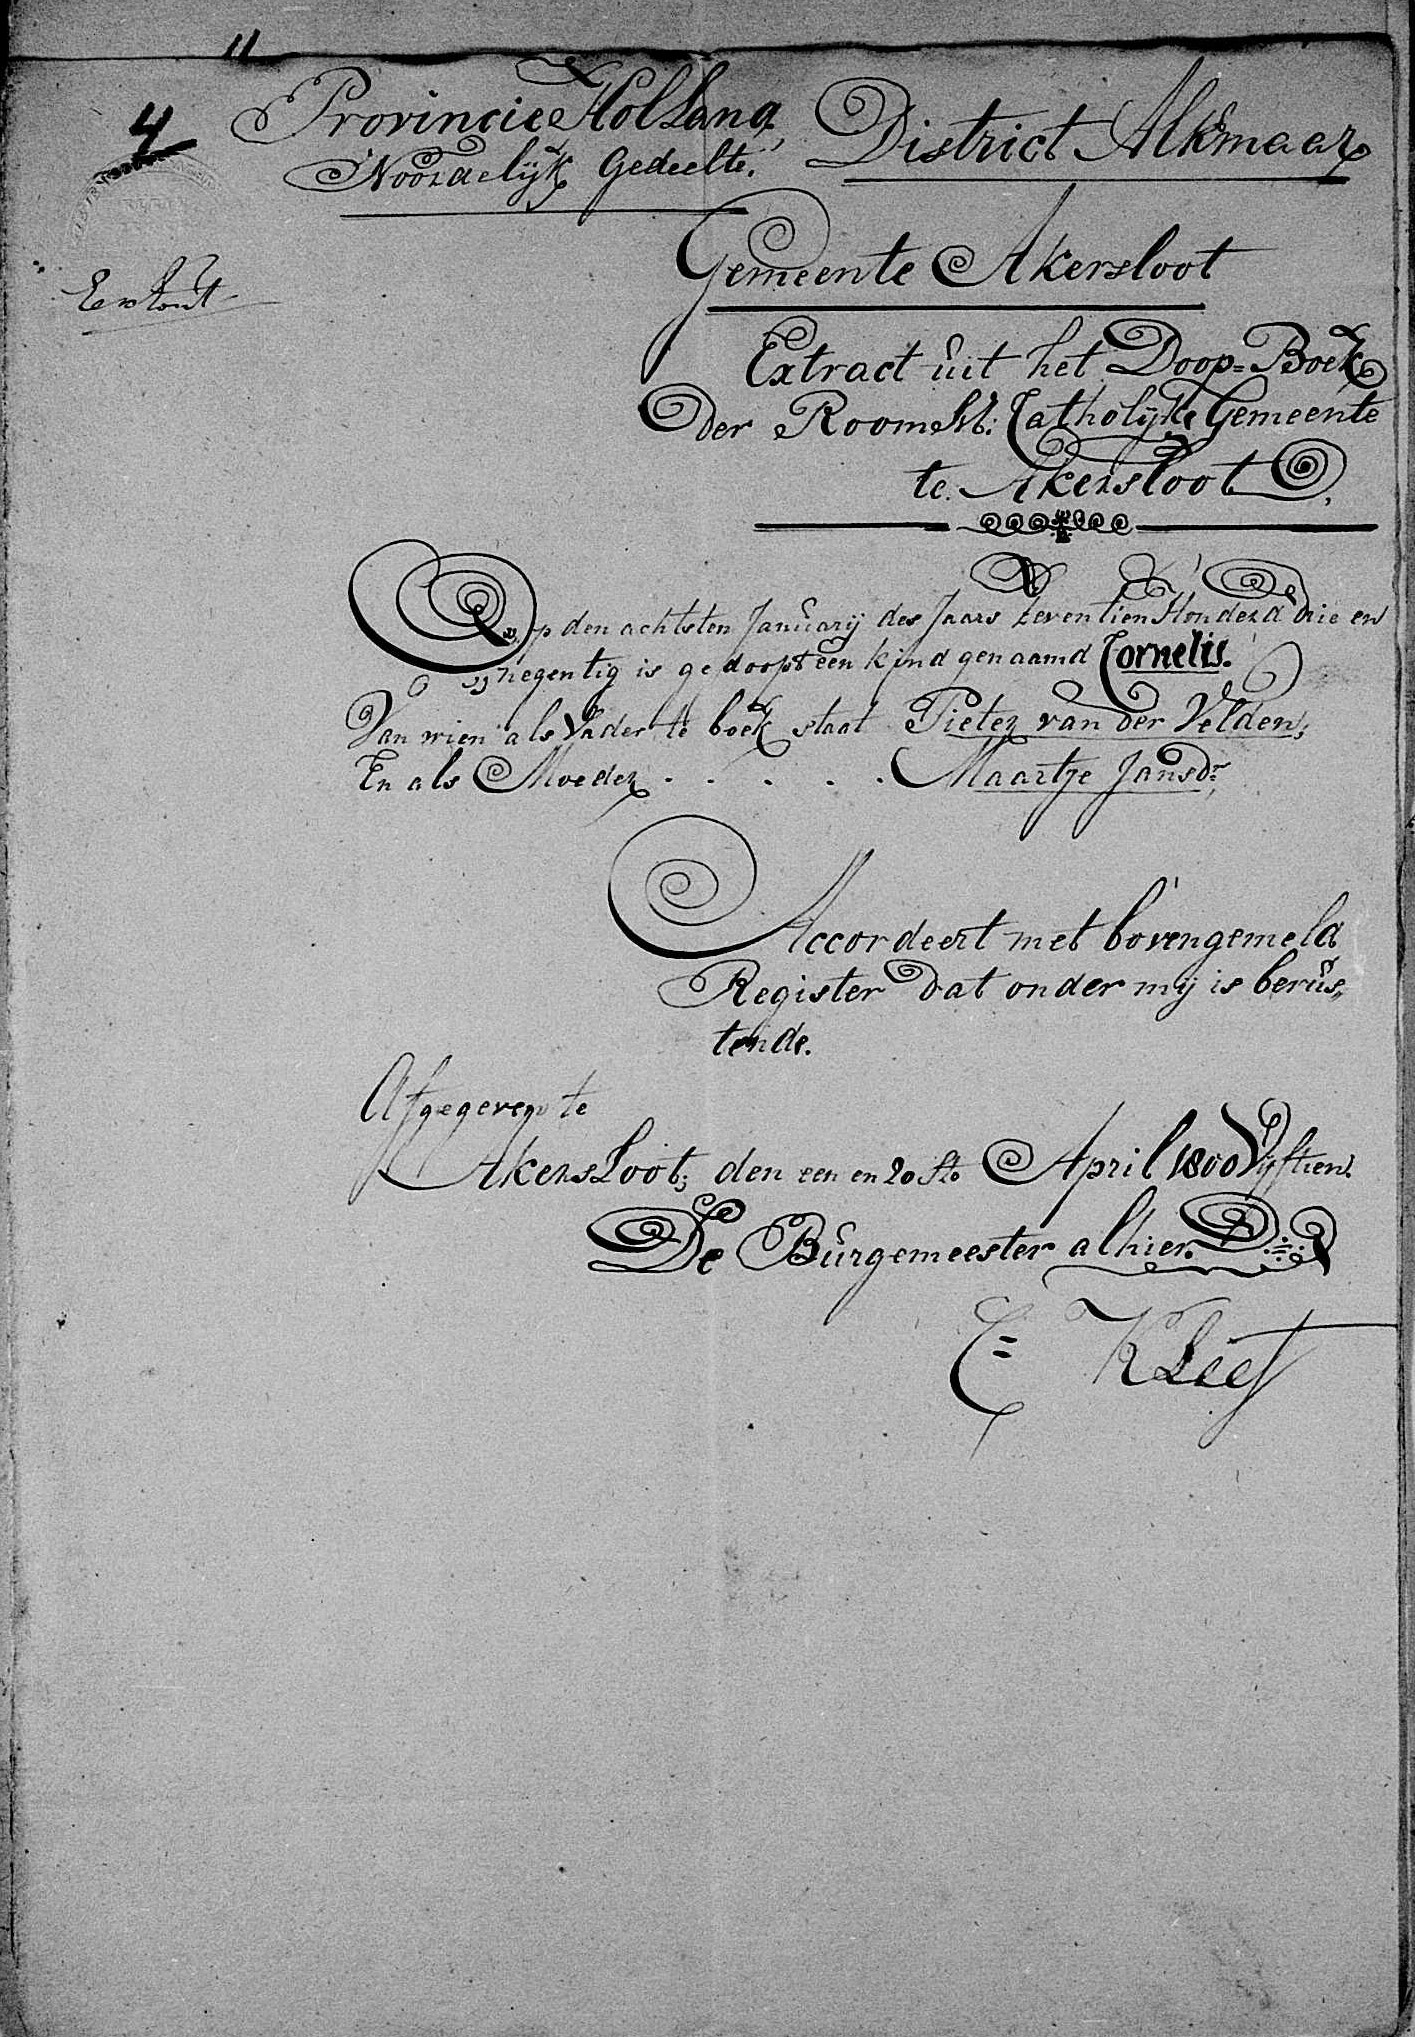 4
Provincie Holland, District Alkmaar
Noordelijk Gedeelte.
Gemeente Akersloot
Extract uit het Doop=Boek
Der Roomsch: Catholijke Gemeente
te Akersloot.
Op den achtsten Januarij des Jaars Zeventien Honderd drie en
negentig is gedoopt een kind genaamd Cornelis.
Van wien als Vader te boek staat Pieter van der Velden;
En als Moeder . . . . . Maartje Jansdr,
Accordeert met bovengemeld
Register dat onder mij is berus„
tende.
Afgegeven te
AkersLoot; den een en 20ste April 1800 Vijftien.
De Burgemeester alhier.
C= Kleef